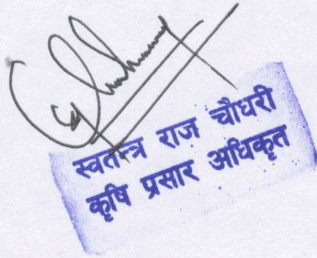 स्वतन्त्र राज चौधरी
कृषि प्रसार अधिकृत